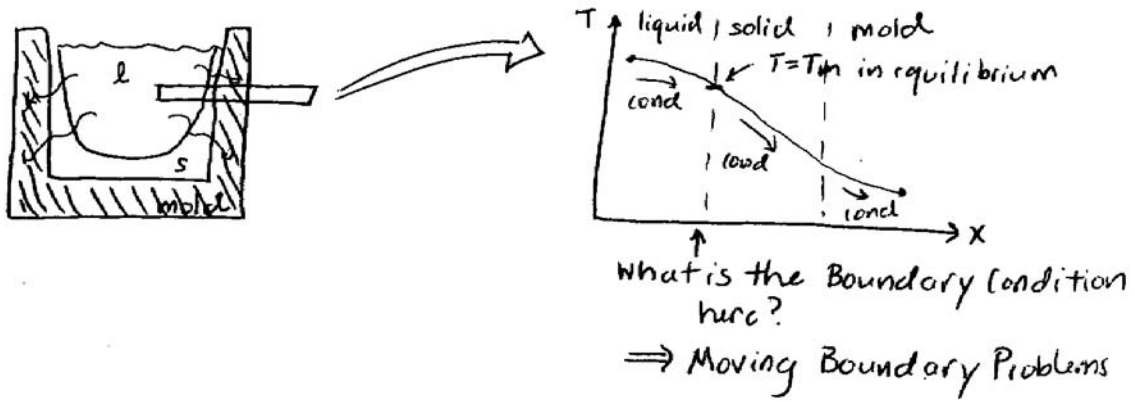 l
s
mold
T
liquid | solid | mold
T=Tm in equilibrium
cond
cond
cond
x
What is the Boundary Condition
here?
⇒ Moving Boundary Problems